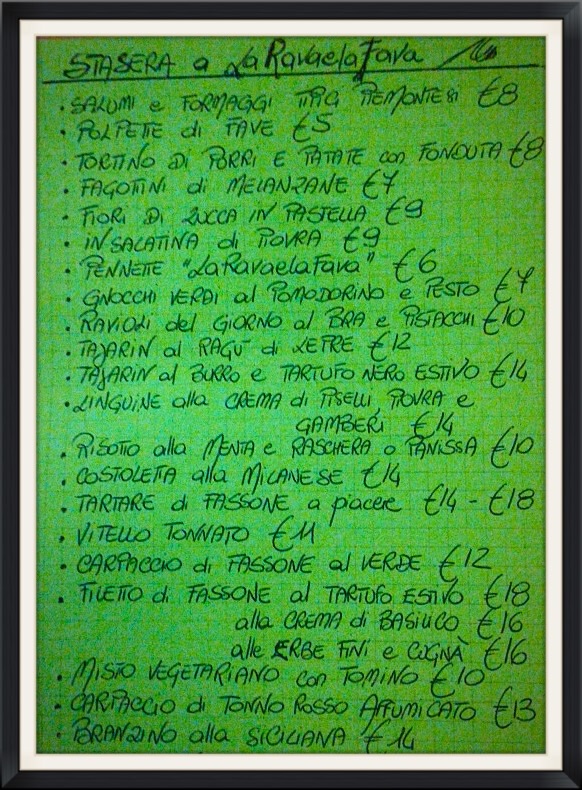 STASERA a LaRavaelaFava
· SALUMI e FORMAGGI TIPICI PIEMONTESI €8
· POLPETTE di FAVE €5
· TORTINO DI PORRI E PATATE con FONDUTA €8
· FAGOTTINI di MELANZANE €7
· FIORI DI ZUCCA IN PASTELLA €9
· INSALATINA di PIOVRA €9
· PENNETTE "LaRavaelaFava" €6
· GNOCCHI VERDI al POMODORINO e PESTO €7
· RAVIOLI del GIORNO al BRA e PISTACCHI €10
· TAJARIN al RAGU' di LEPRE €12
· TAJARIN al BURRO e TARTUFO NERO ESTIVO €14
· LINGUINE alla CREMA di PISELLI, PIOVRA e
GAMBERI €14
· RISOTTO alla MENTA e RASCHERA o PANISSA €10
· COSTOLETTA alla MILANESE €14
· TARTARE di FASSONE a piacere €14 - €18
· VITELLO TONNATO €11
· CARPACCIO di FASSONE al VERDE €12
· FILETTO di FASSONE al TARTUFO ESTIVO €18
alla CREMA di BASILICO €16
alle ERBE FINI e COGNÀ €16
· MISTO VEGETARIANO con TOMINO €10
· CARPACCIO di TONNO ROSSO AFFUMICATO €13
· BRANZINO alla SICILIANA €14